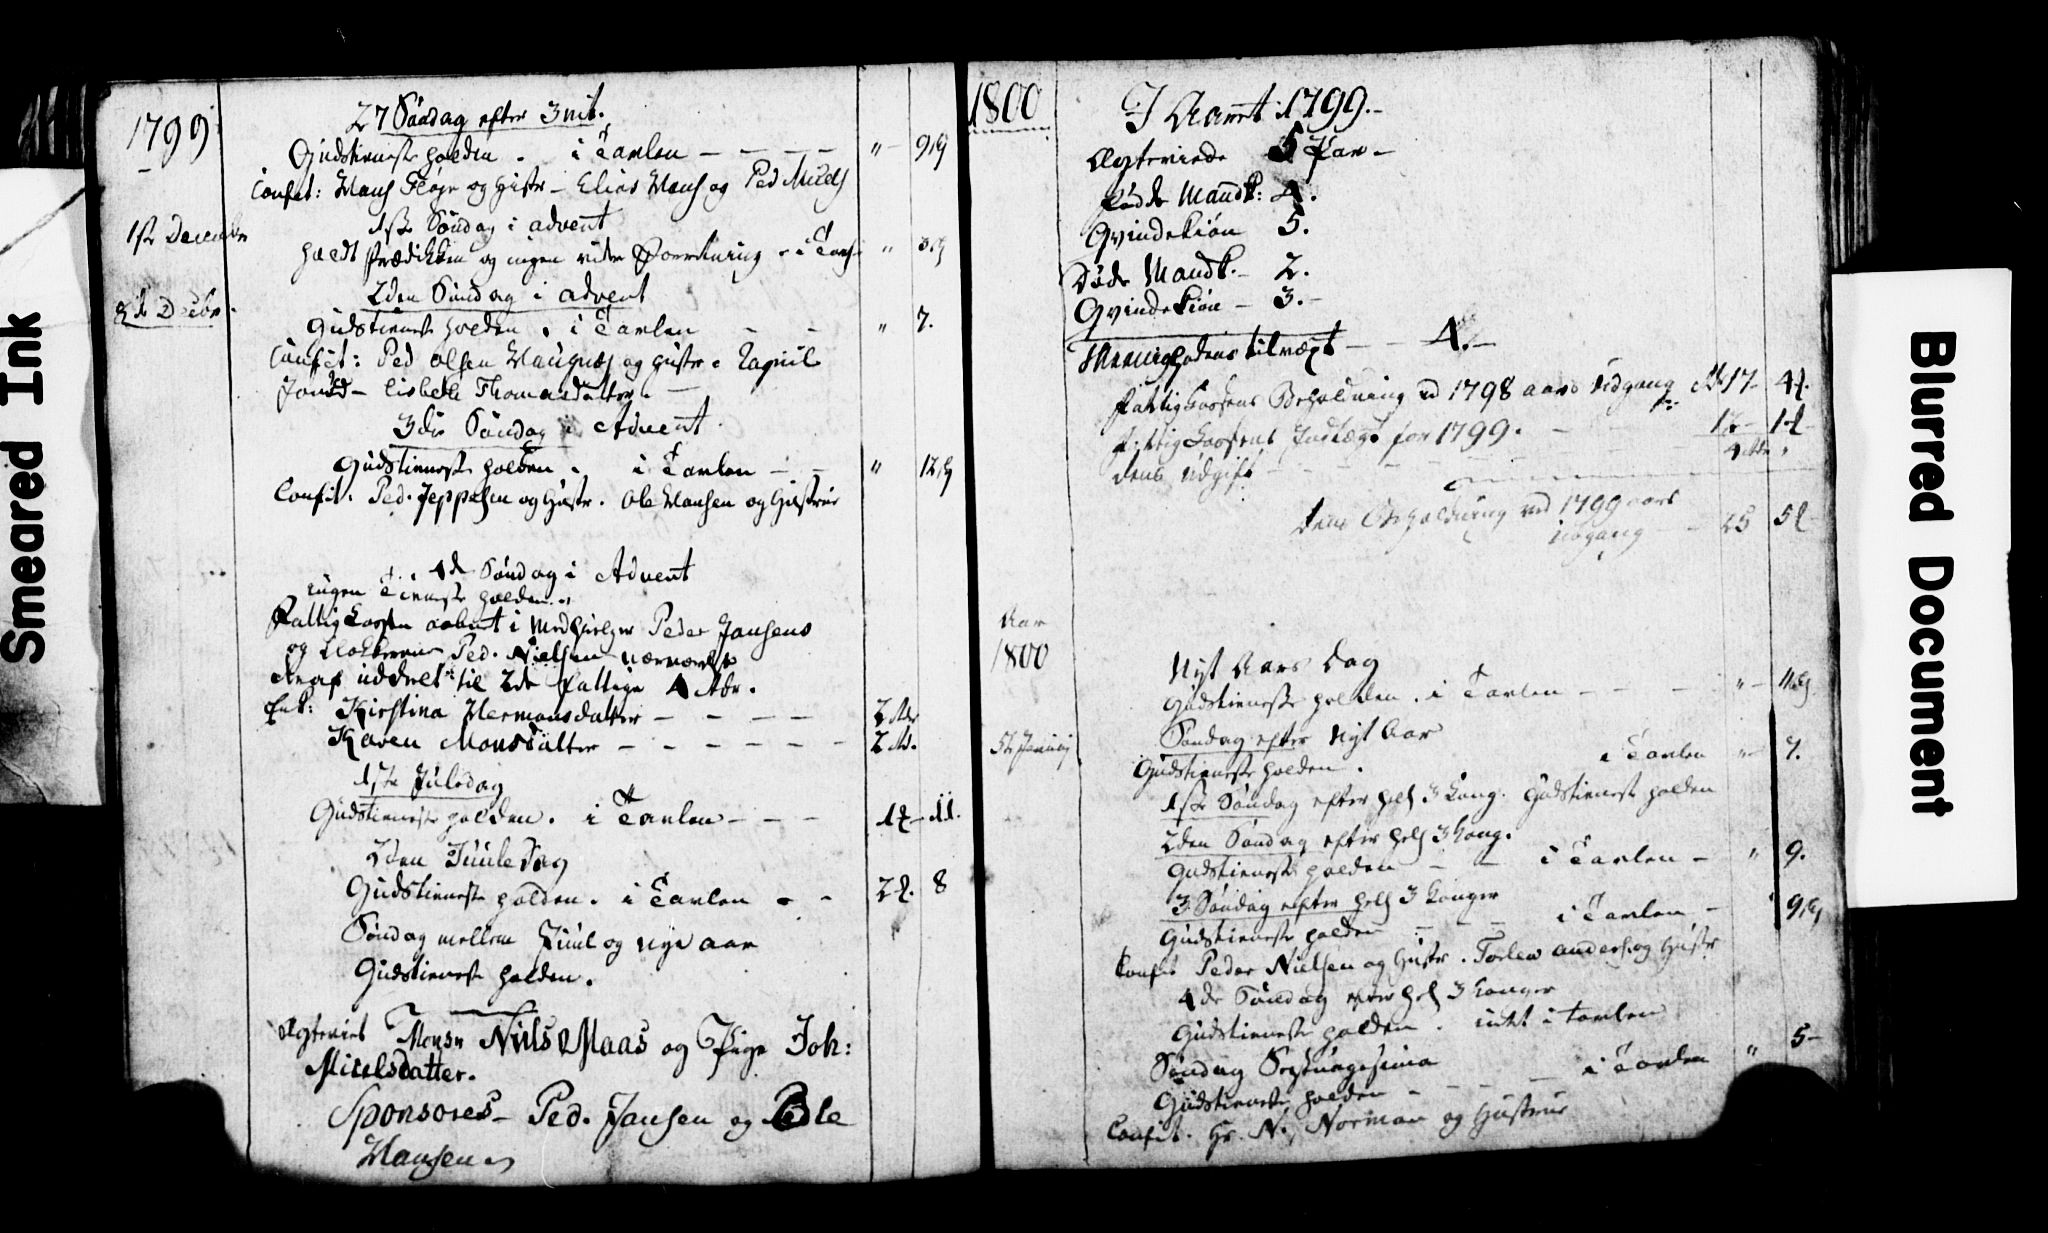 Smeared Ink
1799
27 Søndag efter 3nit.
Gudstieneste holden . i Tavlen — — — — " — 9 ß
Confit: Hans Fløje og Hustr — Elias Hans og Ped Niels
1ste December
1ste Søndag i advent
holdt Prædikken og ingen videre Forretning — i Tavl " 3 ß
8de Decbr.
2den Søndag i advent
Gudstieneste holden . i Tavlen — — " 7.
Confit: Ped Olsen og Hustr .
Lisbeth Thomasdatter. —
3die Søndag i Advent
Gudstieneste holden . i Tavlen — — " 12 ß
Confit. Ped. Jeppesen og Hustr. Ole Hansen og Hustrue
4de Søndag i Advent
ingen Tieneste holden.
Fattig Cassen aabnet i Medhielper Peder Jansens
og Klokkeren Ped. Nielsen nærværelse
deraf uddeelt til 2de Fattige 4 Rdr.
Enk: Kirstina Hermansdatter — — — — 2 Rdr
Karen Monsdatter — — — — — — 2 Rd.
1ste Juledag
Gudstieneste holden. i Tavlen — — — 1 — 11.
2den Juule Dag
Gudstieneste holden. i Tavlen — — 2 . 8
Søndag mellem Juul og nye aar
Gudstieneste holden.
Ægteviet Mons Niels Maas og Pige Joh:
Nielsdatter.
Sponsores — Ped. Jansen og Pedle
Hansen
1800
I Aaret 1799.—
Ægteviede 5 Par —
Fødde Mandk: 4.
Qvindekiøn 5.
Døde Mandk. — 2.
Qvindekiøn — 3. —
Menighedens tilvæxt — — 4. —
Fattig Cassens Beholdning ved 1798 aars Udgang 17 — 4
Fattig Cassens Indtægt for 1799. — 1
dens Udgift — 4 Rdr "
dens Beholdning ved 1799 aars
udgang — 25 5
Aar
1800
Nyt Aars Dag
Gudstieneste holden . i Tavlen — — — " — 11 ß
5te Januarij
Søndag efter Nyt Aar
Gudstieneste holden . i Tavlen " — 7.
1ste Søndag efter Hell 3 Kong. Gudstieneste holden
2den Søndag efter Hell 3 Kong.
Gudstieneste holden — — i Tavlen — " 9.
3 Søndag efter Hell 3 Konger
Gudstieneste holden — — i Tavlen — 9 ß
Confit Peder Nielsen og Hustr . Torlew anders. og Hustr
4de Søndag efter Hell 3 Konger
Gudstieneste holden . intet i Tavlen
Søndag Sextuagesima
Gudstieneste holden — — — — i Tavlen " 5 —
Confit. Hr. N. Norman og Hustrue
Blurred Document